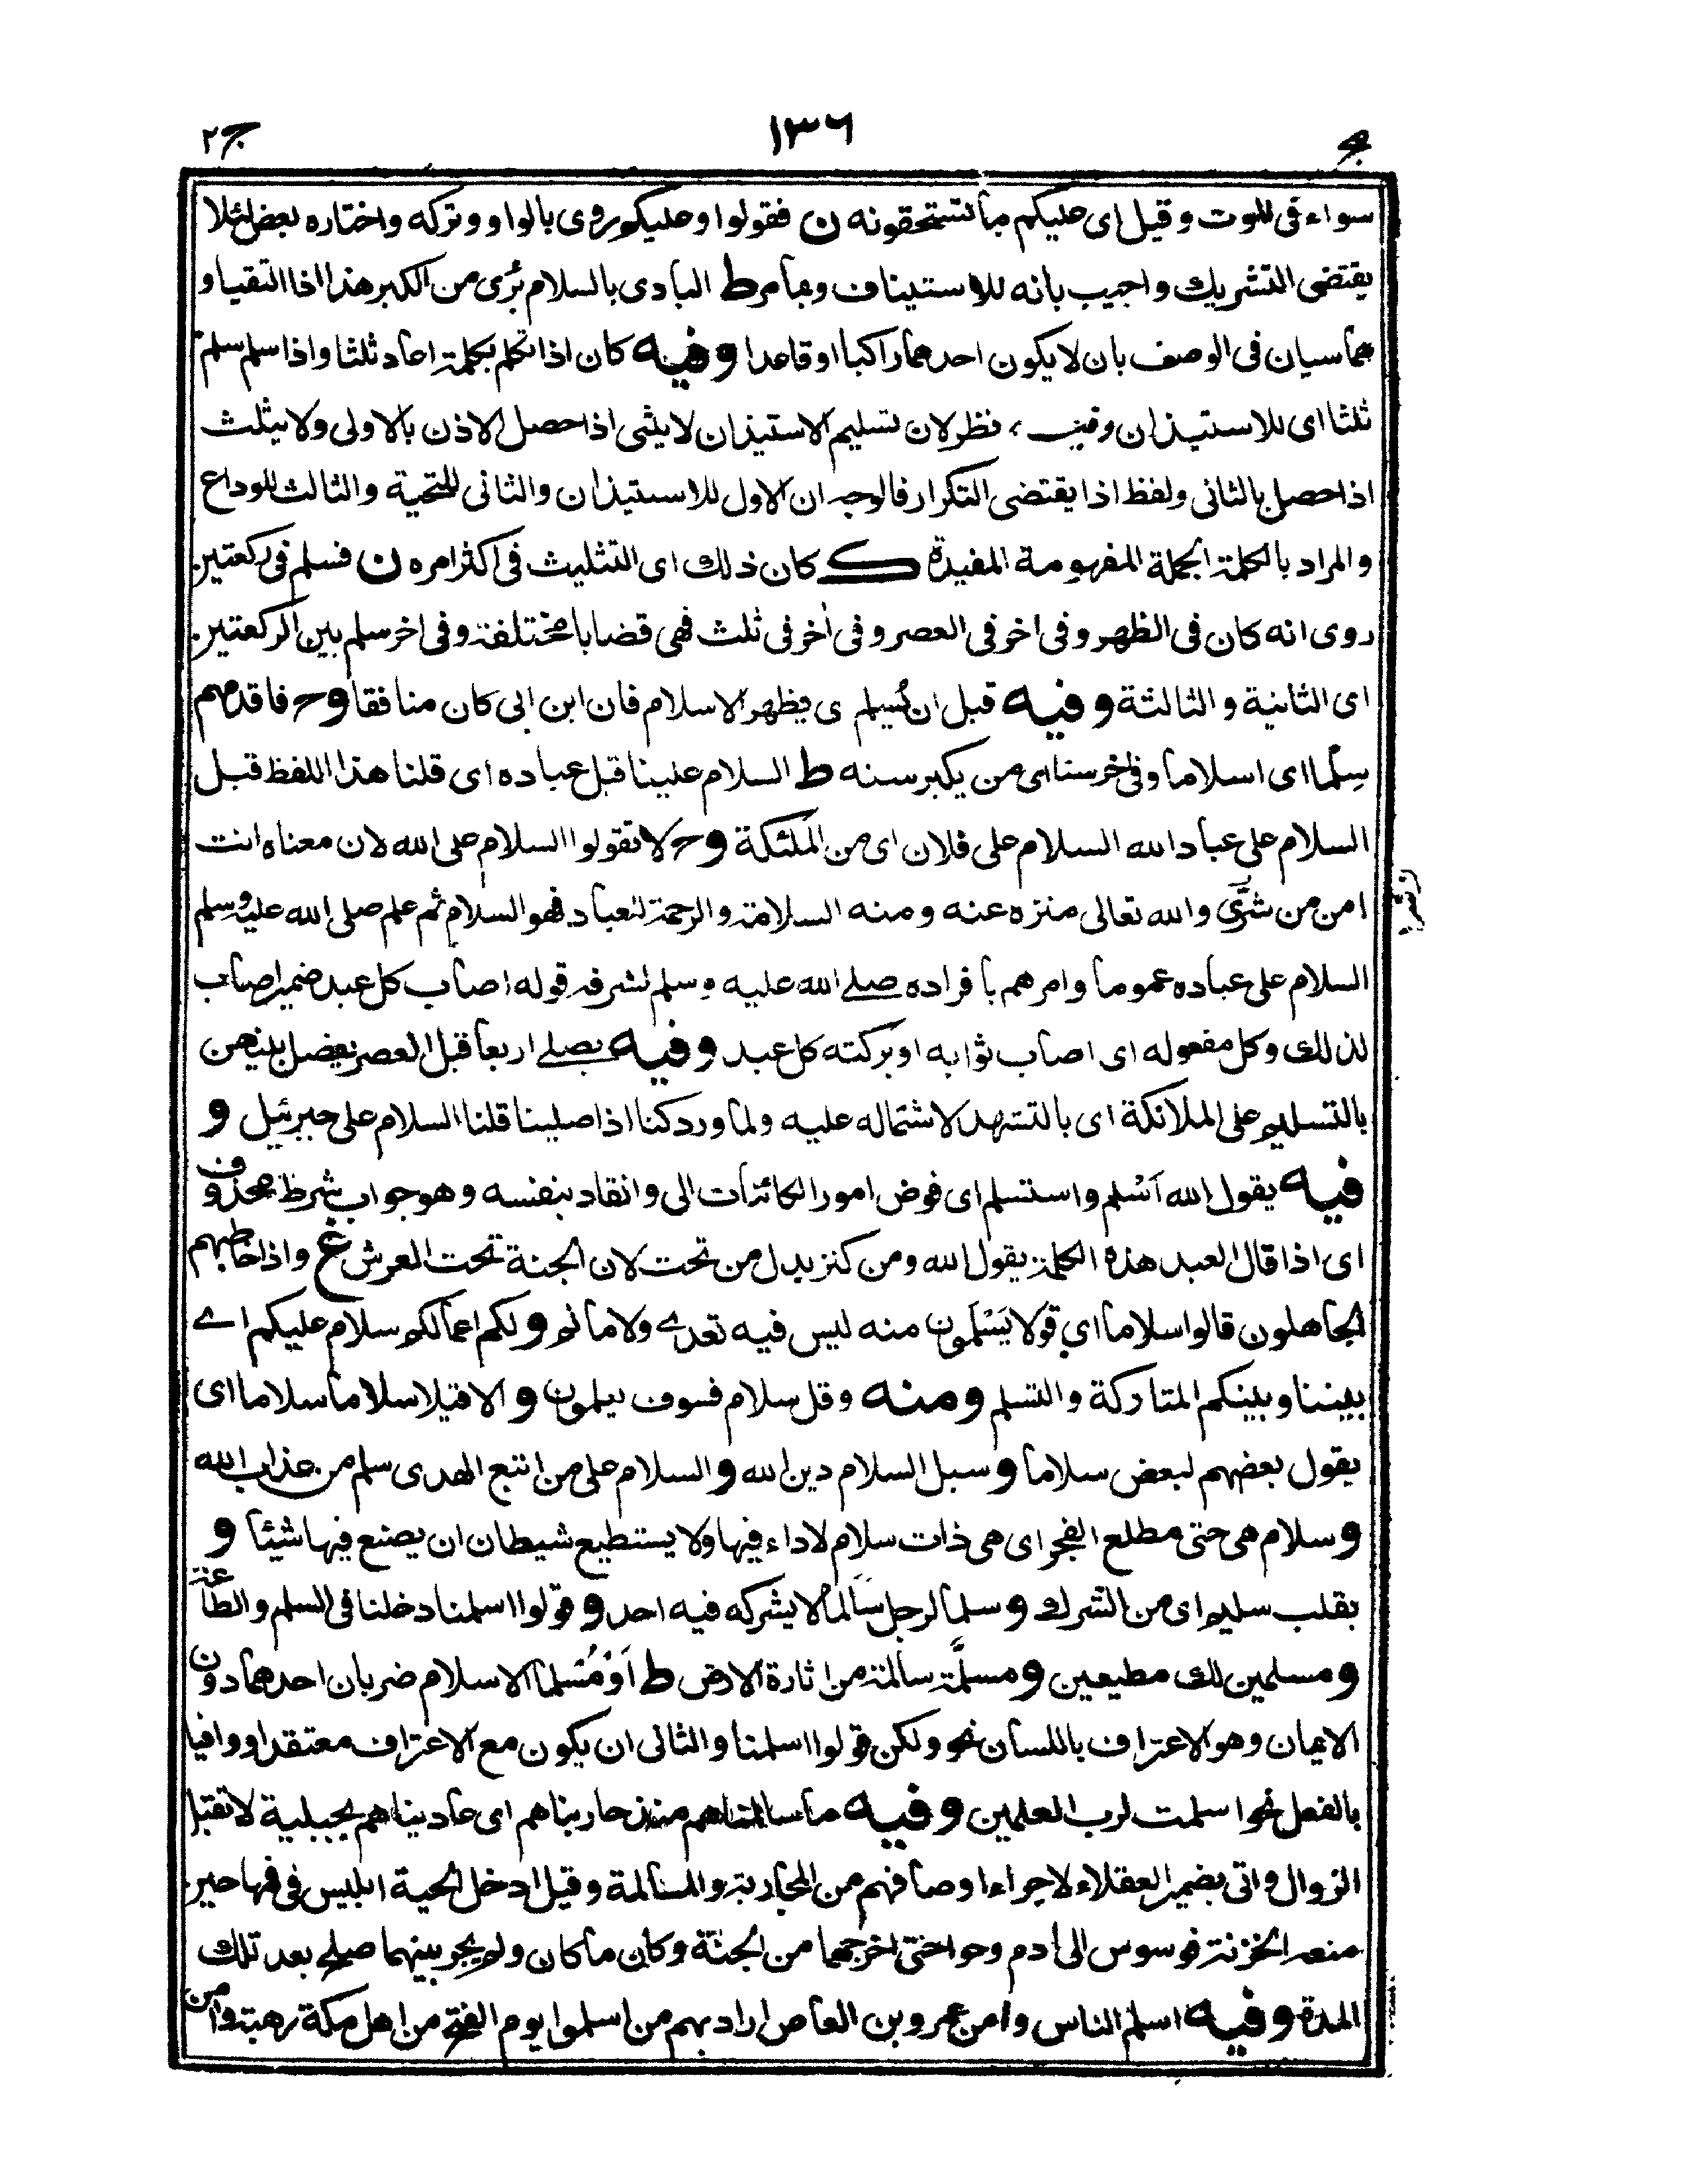 ج٢
١٣٦
سواء فى الموت و قيل اى عليكم ما تستحقونه ن فقولوا وعليكم روى بالواو وتركه واختاره بعض لئلا
يقتضى التشريك واجيب بانه للاستيناف وبما مر ط البادى بالسلام برى من الكبر هذا اذا التقيا و
هما سيان فى الوصف بان لا يكون احدهما راكبا او قاعدا وفيه كان اذا تكلم بكلمة اعاد ثلثا واذا سلم سلم
ثلثا اى للاستيذان وفيه نظر لان تسليم الاستيذان لا يثنى اذا حصل الاذن بالاولى ولا يثلث
اذا حصل بالثانى ولفظ اذا يقتضى التكرار فالوجه ان الاول للاستيذان والثانى للتحية والثالث للوداع
والمراد بالكلمة الجملة المفهومة المفيدة ك كان ذلك اى التثليث فى اكثر امره ن فسلم فى ركعتين
روى انه كان فى الظهر وفى اخر فى العصر وفى اخر فى ثلث فهى قضايا مختلفة وفى اخر سلم بين الركعتين
اى الثانية و الثالثة وفيه قبل ان يُسلم ى يظهر الاسلام فان ابن ابى كان منافقا وح فاقدمهم
سلما اى اسلاما وفى اخر سنا اى من يكبر سنه ط السلام علينا قبل عباده اى قلنا هذا اللفظ قبل
السلام على عباد الله السلام على فلان اى من الملئكة وح لا تقولوا السلام على الله لان معناه انت
امن من شرى والله تعالى منزه عنه ومنه السلامة والرحمة لعباد فهو السلام ثم علم صلى الله عليه وسلم
السلام على عباده عموما وامرهم بافراده صلے الله عليه وسلم لشرفه قوله اصاب كل عبد ضمير اصاب
لذلك وكل مفعوله اى اصاب ثوابه او بركته كل عبد وفيه يصلے اربعا قبل العصر يفصل بينهن
بالتسليم على الملائكة اى بالتشهد لاشتماله عليه ولما ورد كنا اذا صلينا قلنا السلام على جبرئيل و
فيه يقول الله اَسْلم واستسلم اى فوض امور الكائنات الى وانقاد بنفسه وهو جواب شرط محذوف
اى اذا قال العبد هذه الكلمة يقول الله ومن كنز بدل من تحت لان الجنة تحت العرش غ واذا خاطبهم
الجاهلون قالوا سلاما اى قولا يَسْلَمون منه ليس فيه تعدے ولا ماثم و لكم اعمالكم سلام عليكم اے
بيننا وبينكم المتاركة والتسلم ومنه وقل سلام فسوف يعلمون و الا قيلا سلاما سلاما اى
يقول بعضهم لبعض سلاما و سبل السلام دين الله و السلام على من اتبع الهدى سلم من عذاب الله
و سلام هى حتى مطلع الفجر اى هى ذات سلام لا داء فيها ولا يستطيع شيطان ان يصنع فيها شيئا و
بقلب سليم اى من الشرك و سلما لرجل سالما لا يشركه فيه احد و قولوا اسلمنا دخلنا فى السلم والطاعة
و مسلمين لك مطيعين و مسلّمة سالمة من اثارة الارض ط اَوْ مُسْلما الاسلام ضربان احدهما دون
الايمان وهو الاعتراف باللسان نحو ولكن قولوا اسلمنا والثانى ان يكون مع الاعتراف معتقدا ووافيا
بالفعل نحو اسلمت لرب العلمين وفيه ما سالمناهم منذ حاربناهم اى عاديناهم بجبلية لا تقبل
الزوال واتى بضمير العقلاء لاجراء اوصافهم من المحاربة والمسالمة وقيل ادخل الحية ابليس فى فمها حين
منعه الخزنة فوسوس الى ادم وحوا حتى اخرجهما من الجنة وكان ما كان ولم يجر بينهما صلح بعد تلك
المدة وفيه اسلم الناس وامن عمرو بن العاص اراد بهم من اسلموا يوم الفتح من اهل مكة رهبة وامن